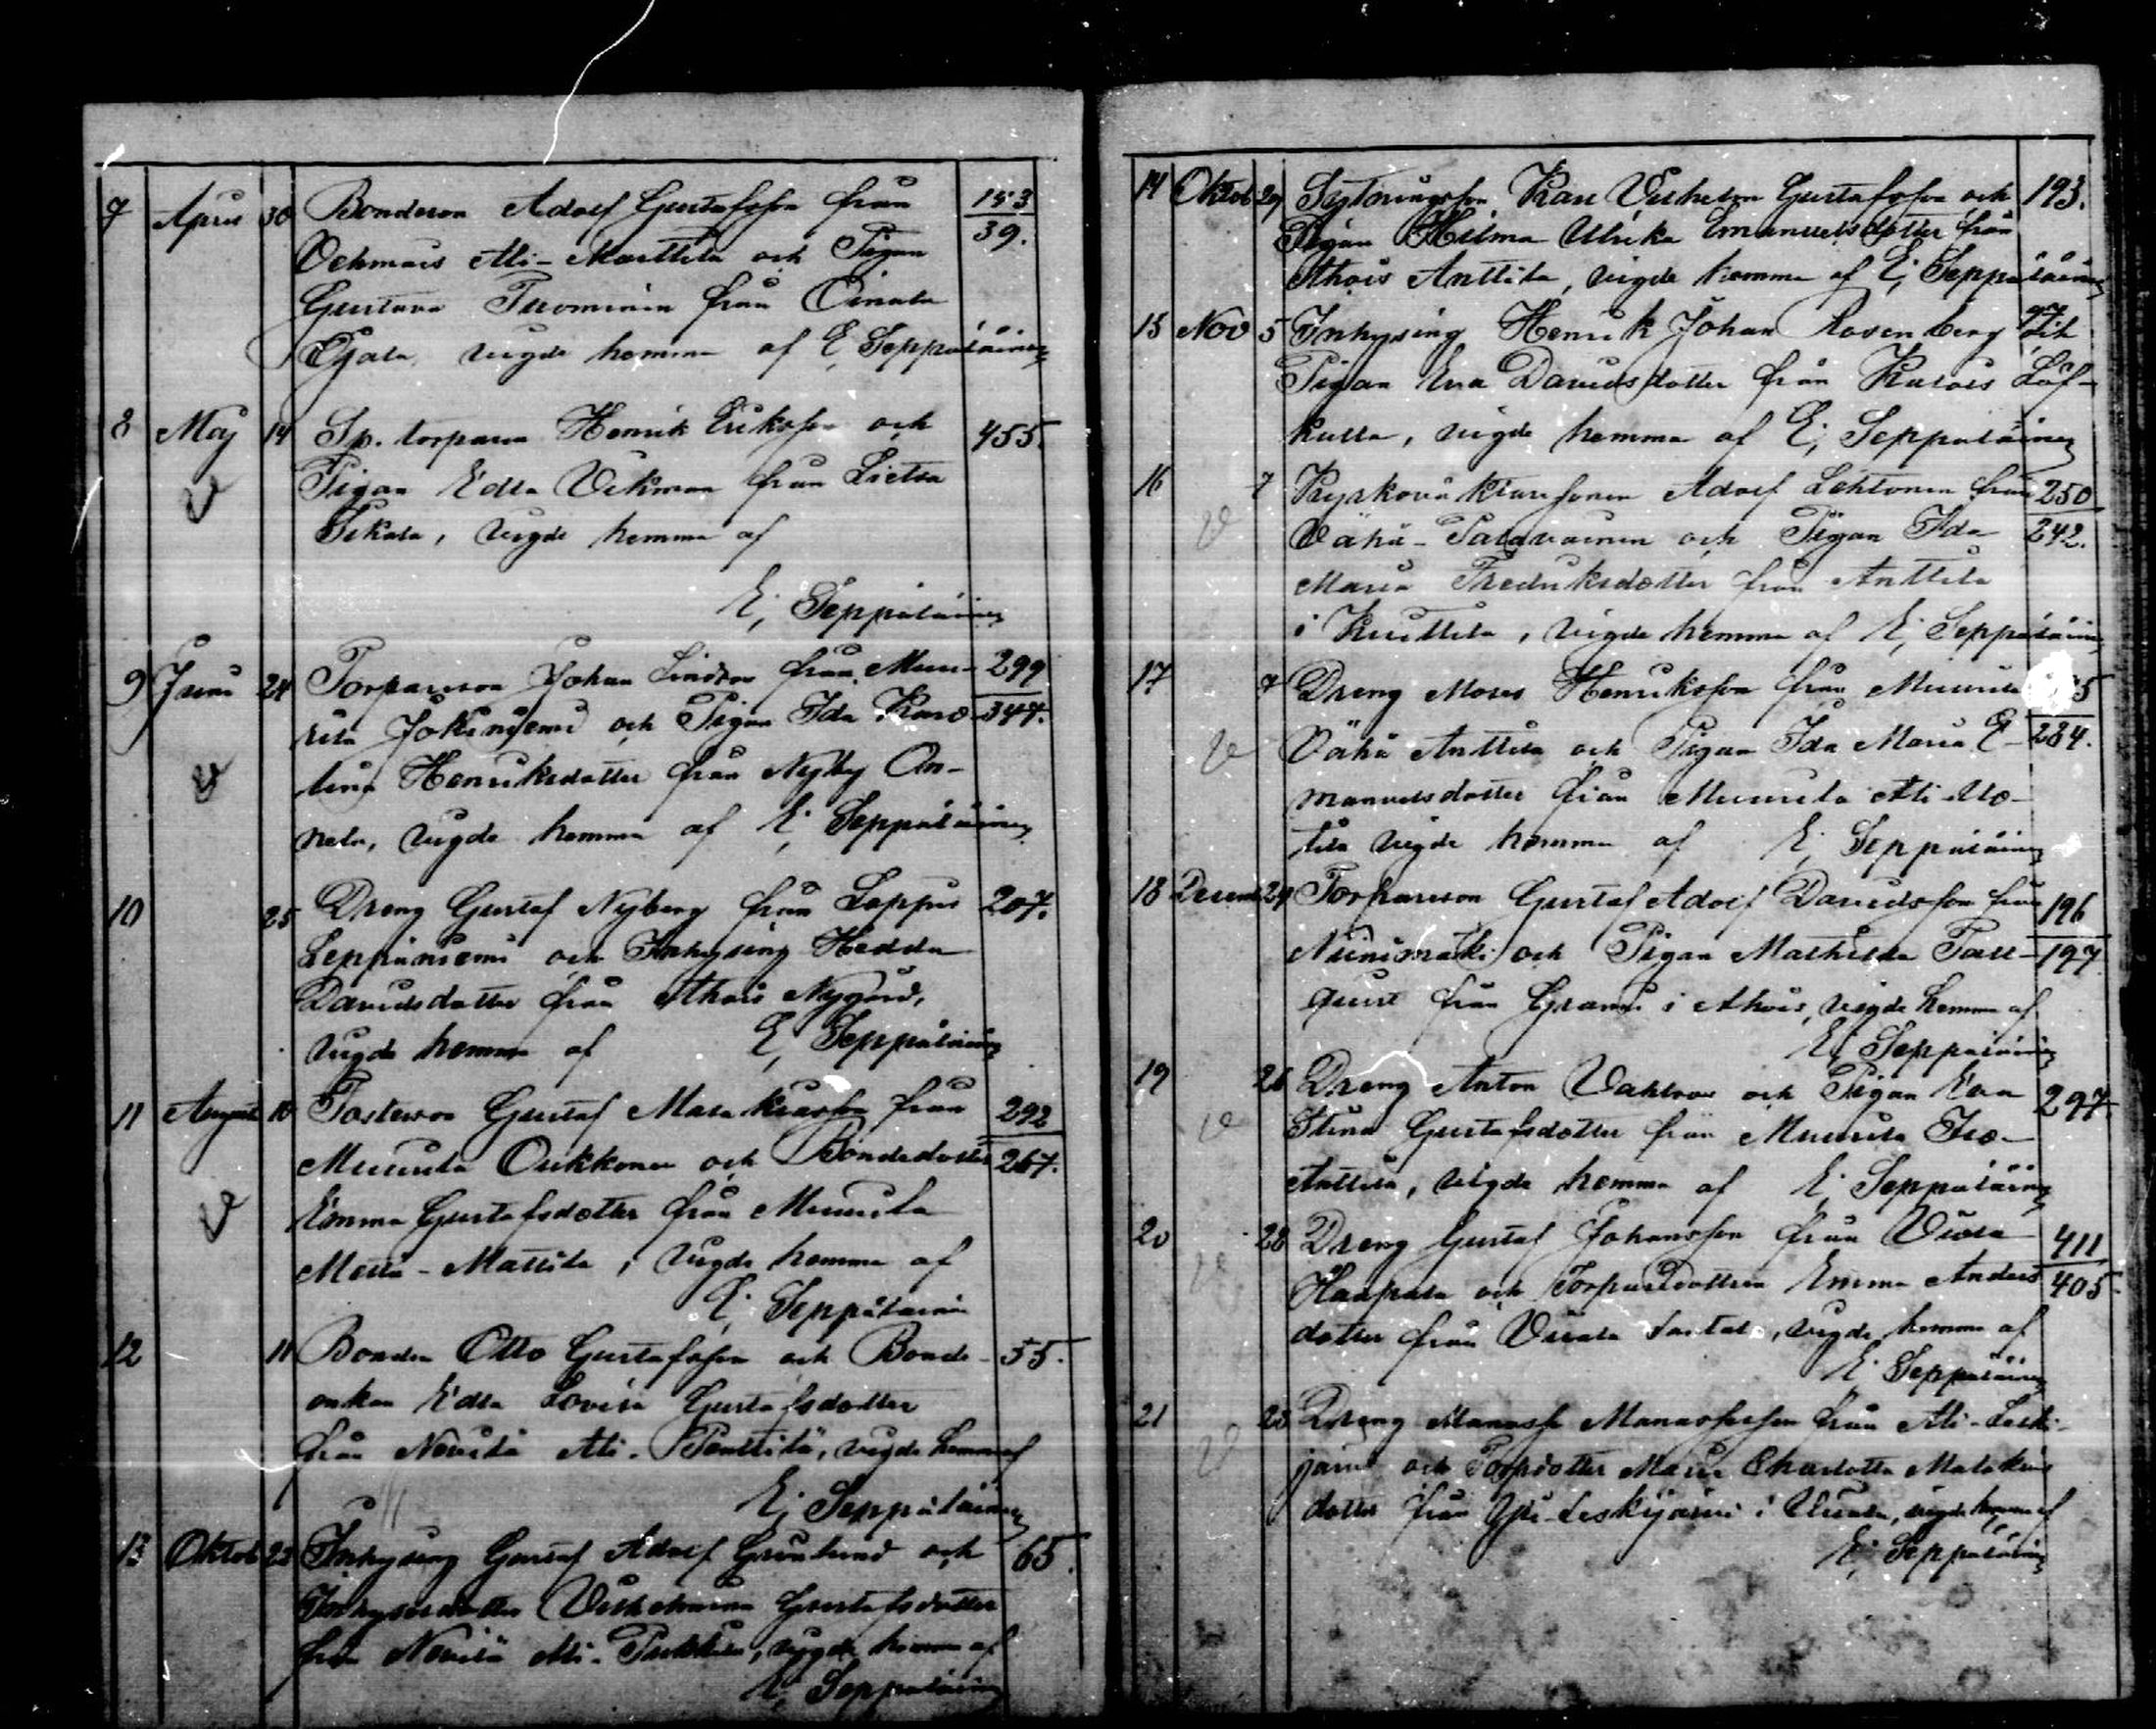 7 April 30 Bondeson Adolf Gustafsson från 153
Vehmais Ali-Marttila och Pigan 39.
Gustava Tuominen från Oinala
Ojala, vigde hemma af E, Seppäläinen
8 Maj 14 Sp. torparen Henrik Eriksson och 455.
Pigan Edla Vekman från Lietsa
Sikala, vigde hemma af
E, Seppäläinen
9 Juni 24 Torpareson Johan Lindros från Muu- 299
rila Jokiniemi och Pigan Ida Karo- 347.
lina Henriksdotter från Nyby On-
nela, vigde hemma af E, Seppäläinen
10 25 Dreng Gustaf Nyberg från Lappis 207.
Leppäniemi och Inhysing Hedda
Davidsdotter från Ahois Nygård,
vigde hemma af E, Seppäläinen
11 August 10 Fosterson Gustaf Malakiasson från 292
Muurila Oukkonen och Bondedotter 267.
Emma Gustafsdotter från Muurila
Mattila, vigde hemma af
E, Seppäläinen
12 11 Bonden Otto Gustafsson och Bonde- 55.
enkan Edla Lovisa Gustafsdotter
från Nevilä Ali-Penttilä, vigde hemma af
E, Seppäläinen
13 Oktob 22 Inhysing Gustaf Adolf Grönlund och 65.
Inhysesdotter Vilhelmina Gustafsdotter
från Nevilä Ali-, vigde hemma af
E, Seppäläinen
14 Oktob 29 Sytningsson Karl Vilhelm Gustafsson och 193.
Pigan Hilma Ulrika Emanuelsdotter från
Ahois Anttila, vigde hemma af E, Seppäläinen
15 Nov 5 Inhysing Henrik Johan Rosenberg och 27
Pigan Eva Davidsdotter från Kulois Löf-
kulla, vigde hemma af E, Seppäläinen
16 7 Kyrkovaktaresonen Adolf Lehtonen från 250
Vähä-Palavainen och Pigan Ida 242.
Maria Fredriksdotter från Anttila
i Kuittila, vigde hemma af E, Seppäläinen
17 7 Dreng Moses Henriksson från Muurila 5
Vähä Anttila och Pigan Ida Maria E- 284.
manuelsdotter från Muurila Ali-Ma-
tila vigde hemma af E, Seppäläinen
18 Decemb 24 Torpareson Gustaf Adolf Davidsson från 196
Niinimäki och Pigan Mathilda Tall- 197
qvist från Grann i Ahois, vigde hemma af
E, Seppäläinen
19 26 Dreng Anton Vahlros och Pigan Eva 297.
Stina Gustafsdotter från Muurila Iso-
Anttila, vigde hemma af E, Seppäläinen
20 28 Dreng Gustaf Johansson från Viiala 411
Haapala och Torparedottren Emma Anders 405.
dotter från Viiala, vigde hemma af
E, Seppäläinen
21 28 Dreng Manasse Manassesson från Ali-Leski-
järvi och Torpdotter Maria Charlotta Malakias
dotter från Yli-Leskijärvi i, vigde hemma af
E, Seppäläinen